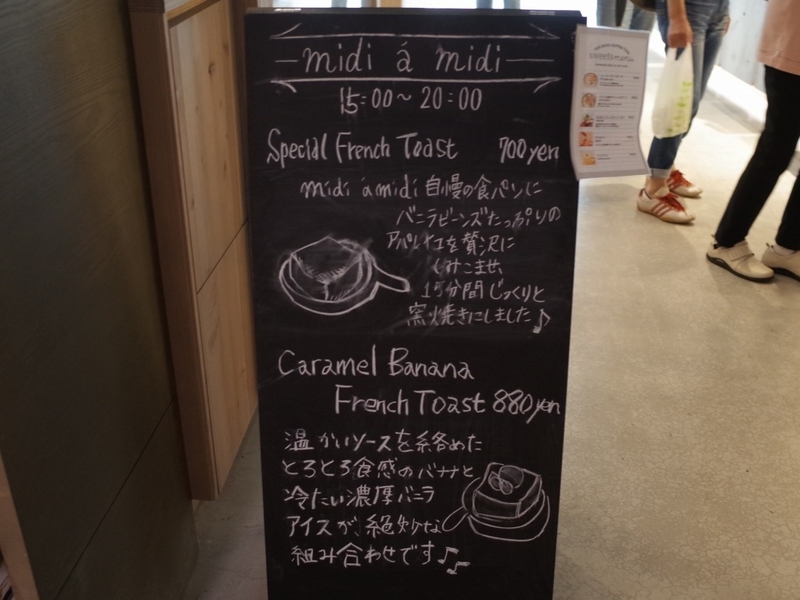 midi á midi
15:00~20:00
Special French Toast 700yen
midi ámidi 自慢の食パンに
バニラビーンズたっぷりの
アパレイユを贅沢に
しみこませ、
15分間じっくりと
窯焼きにしました♪
Caramel Banana
French Toast 880yen
温かいソースを絡めた
とろとろ食感のバナナと
冷たい濃厚バニラ
アイスが、絶妙な
組み合わせです♫
sweets menu